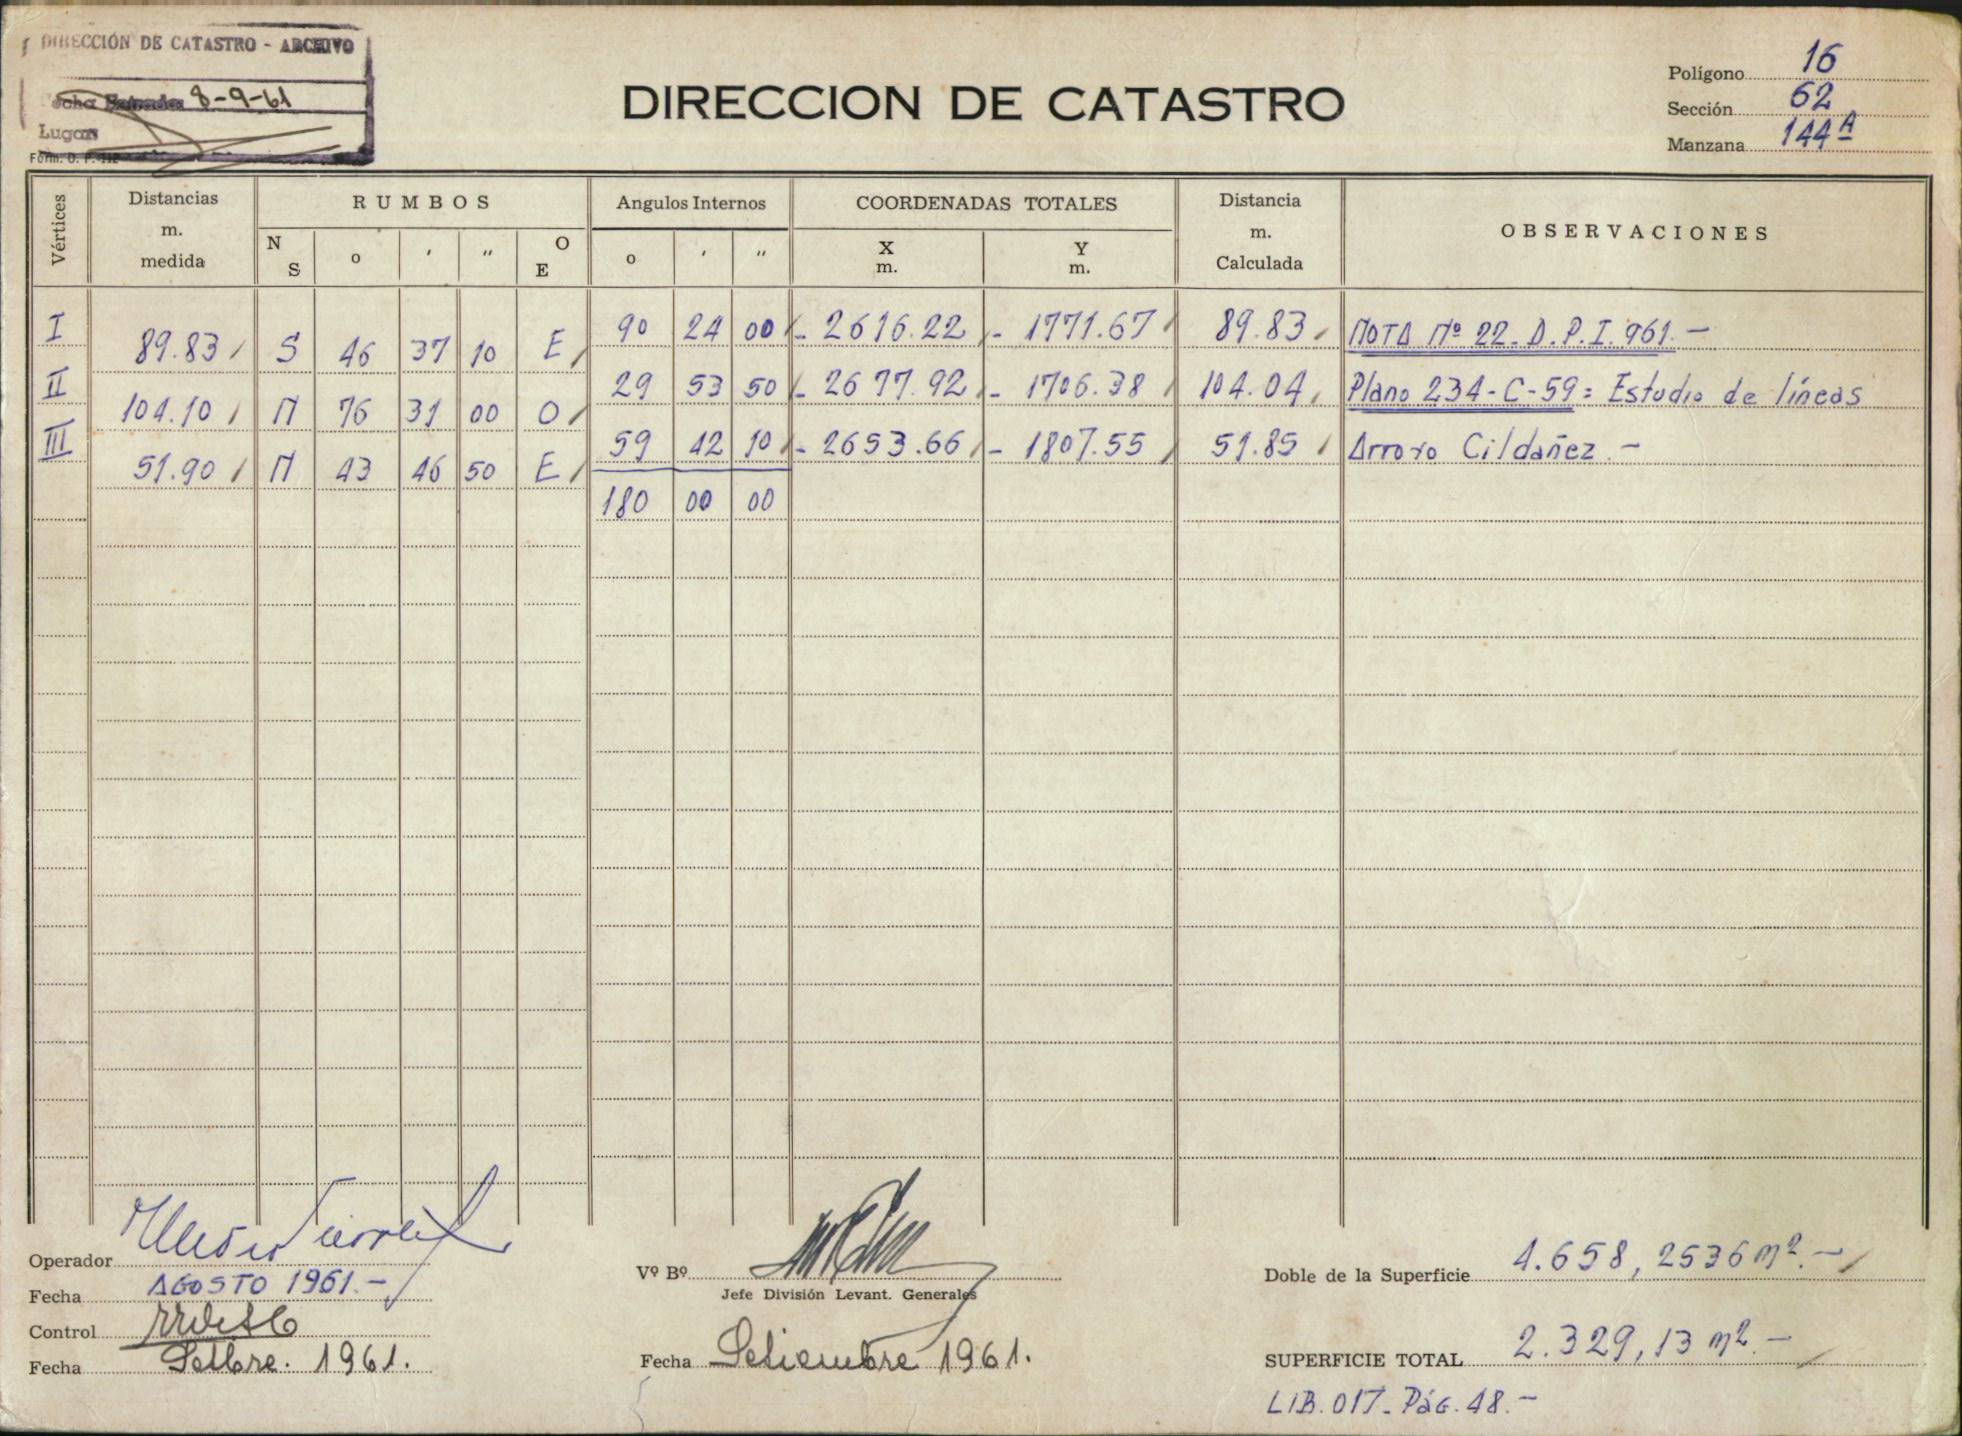 DIRECCIÓN DE CATASTRO - ARCHIVO
Fecha Entrada 8-9-61
Lugar
Form. O. P. 112
DIRECCION DE CATASTRO
Polígono 16
Sección 62
Manzana 144A
Vértices
Distancias m. medida
RUMBOS
N S
o ' "
O E
Angulos Internos
o ' "
COORDENADAS TOTALES
X m.
Y m.
Distancia m. Calculada
OBSERVACIONES
I 90 24 00 - 2616.22 - 1771.67 89.83 NOTA Nº 22. D.P.I. 961.-
89.83 S 46 37 10 E
II 29 53 50 - 2677.92 - 1706.38 104.04 Plano 234-C-59: Estudio de líneas
104.10 N 76 31 00 O
III 59 42 10 - 2653.66 - 1807.55 51.85 Arroyo Cildañez.-
51.90 N 43 46 50 E
180 00 00
Operador
Fecha AGOSTO 1961.-
Control
Fecha Setbre. 1961.
Vº Bº
Jefe División Levant. Generales
Fecha Setiembre 1961.
Doble de la Superficie 4.658,2536 m².-
SUPERFICIE TOTAL 2.329,13 m².-
LIB. 017. Pág. 48.-